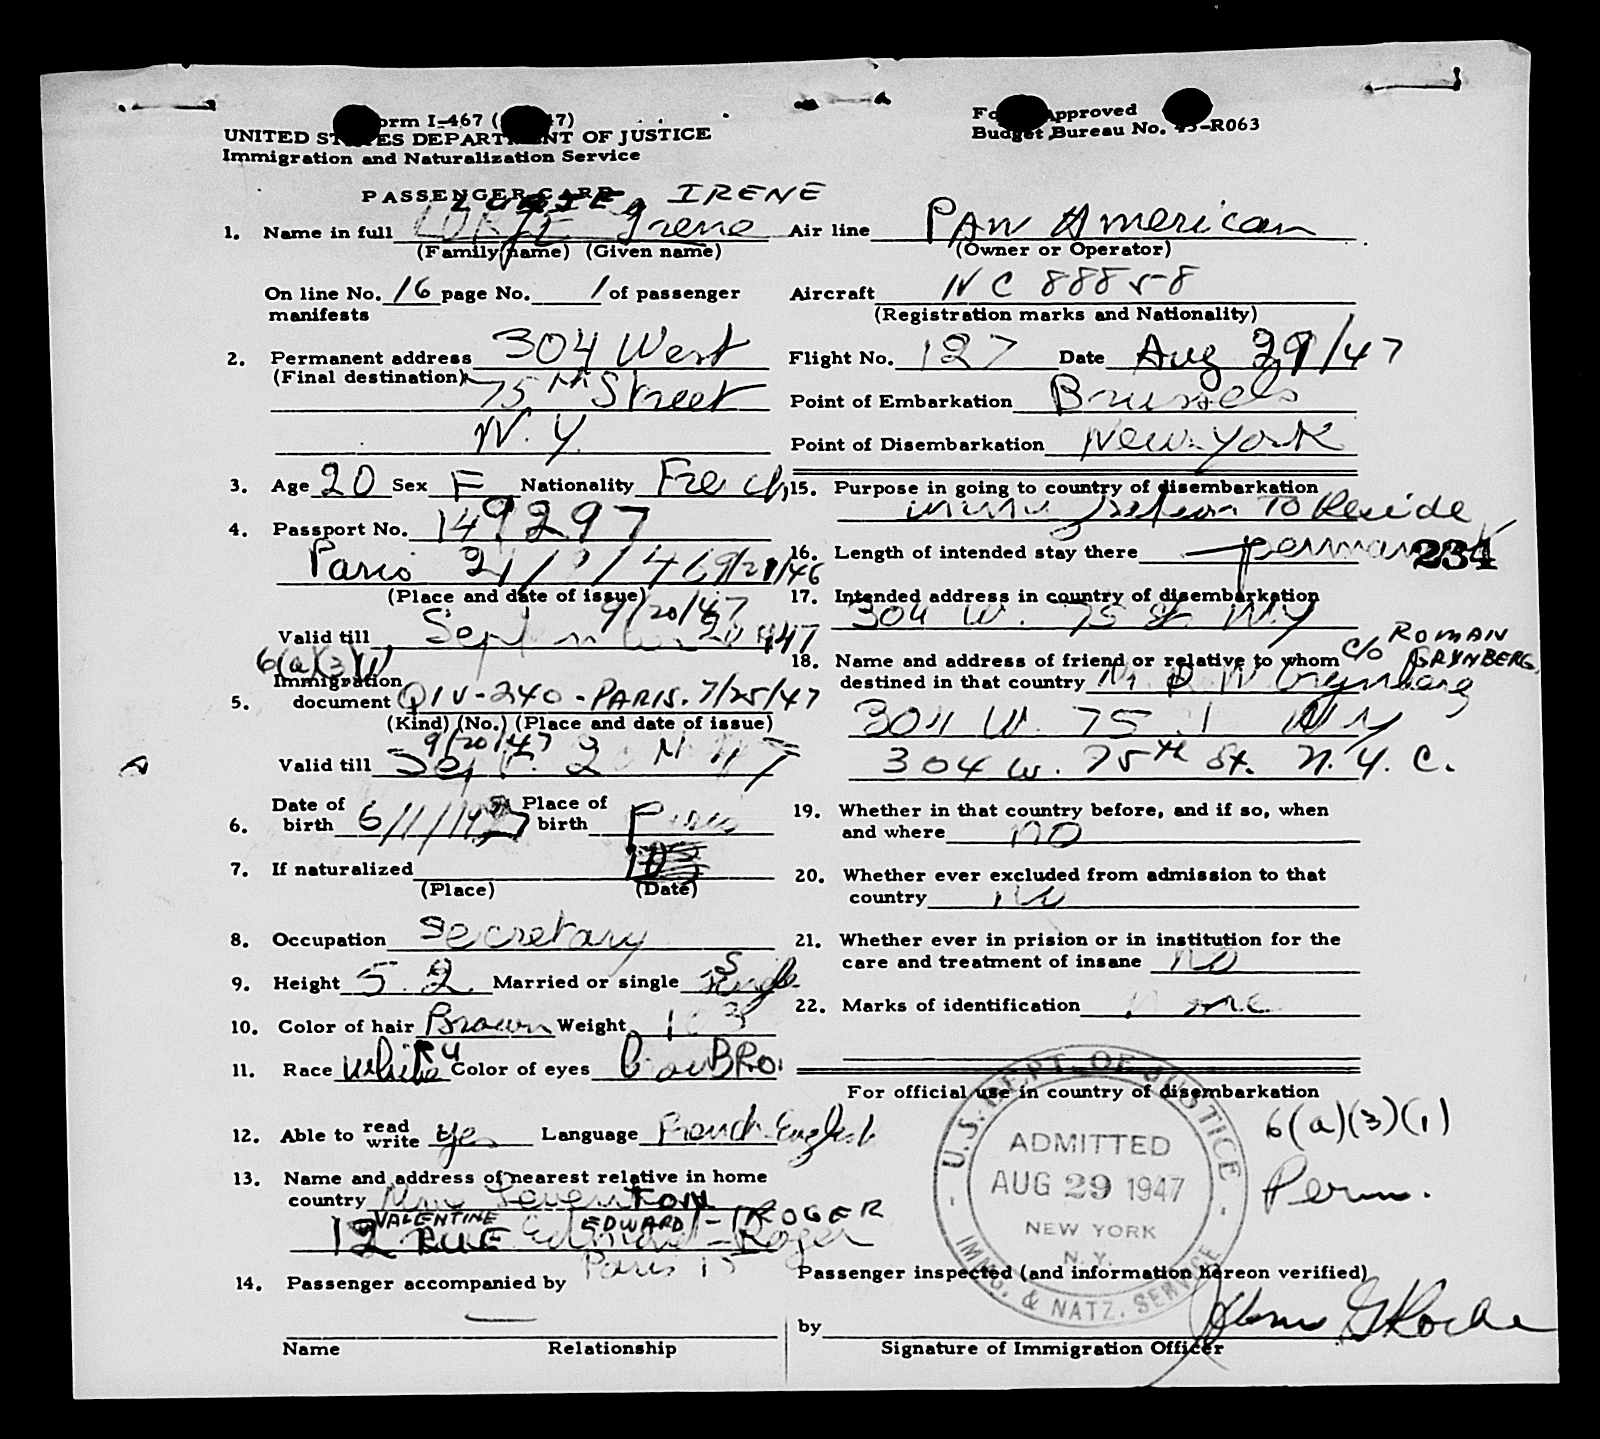 Form I-467 ( 47)
UNITED STATES DEPARTMENT OF JUSTICE
Immigration and Naturalization Service
Form Approved
Budget Bureau No. 43-R063
PASSENGER CARD
LURIE IRENE
1. Name in full Irene
(Family name) (Given name)
On line No. 16 page No. 1 of passenger
manifests
2. Permanent address 304 West
(Final destination) 75th Street
N.Y.
3. Age 20 Sex F Nationality French
4. Passport No. 149297
Paris 9/21/46
(Place and date of issue)
9/20/47
Valid till Sept 20 1947
6(a)(3)(1)
Immigration
5. document QIV-240-PARIS. 7/25/47
(Kind) (No.) (Place and date of issue)
9/20/47
Valid till Sept. 20 47
6. Date of birth 6/1/1927 Place of birth Paris
7. If naturalized
(Place) (Date)
8. Occupation Secretary
9. Height 5.2. Married or single S Single
10. Color of hair Brown Weight 103
11. Race White Color of eyes BRO.
12. Able to read write yes Language French-English
13. Name and address of nearest relative in home
country
VALENTINE EDWARD - ROGER
12 RUE Edward-Roger
Paris 15
14. Passenger accompanied by
—
Name Relationship
Air line PAN American
(Owner or Operator)
Aircraft NC 88858
(Registration marks and Nationality)
Flight No. 127 Date Aug 29/47
Point of Embarkation Brussels
Point of Disembarkation New-York
15. Purpose in going to country of disembarkation
To Reside
16. Length of intended stay there permanent
234
17. Intended address in country of disembarkation
304 W. 75 St N.Y
18. Name and address of friend or relative to whom c/o ROMAN
destined in that country GRYNBERG,
Grynberg
304 W. 75 N Y
304 W. 75th St. N.Y.C.
19. Whether in that country before, and if so, when
and where no
20. Whether ever excluded from admission to that
country no
21. Whether ever in prision or in institution for the
care and treatment of insane no
22. Marks of identification none
For official use in country of disembarkation
U.S. DEPT. OF JUSTICE
ADMITTED
AUG 29 1947
NEW YORK
N. Y.
IMMG. & NATZ. SERVICE
6(a)(3)(1)
Perm.
Passenger inspected (and information hereon verified)
by
Signature of Immigration Officer